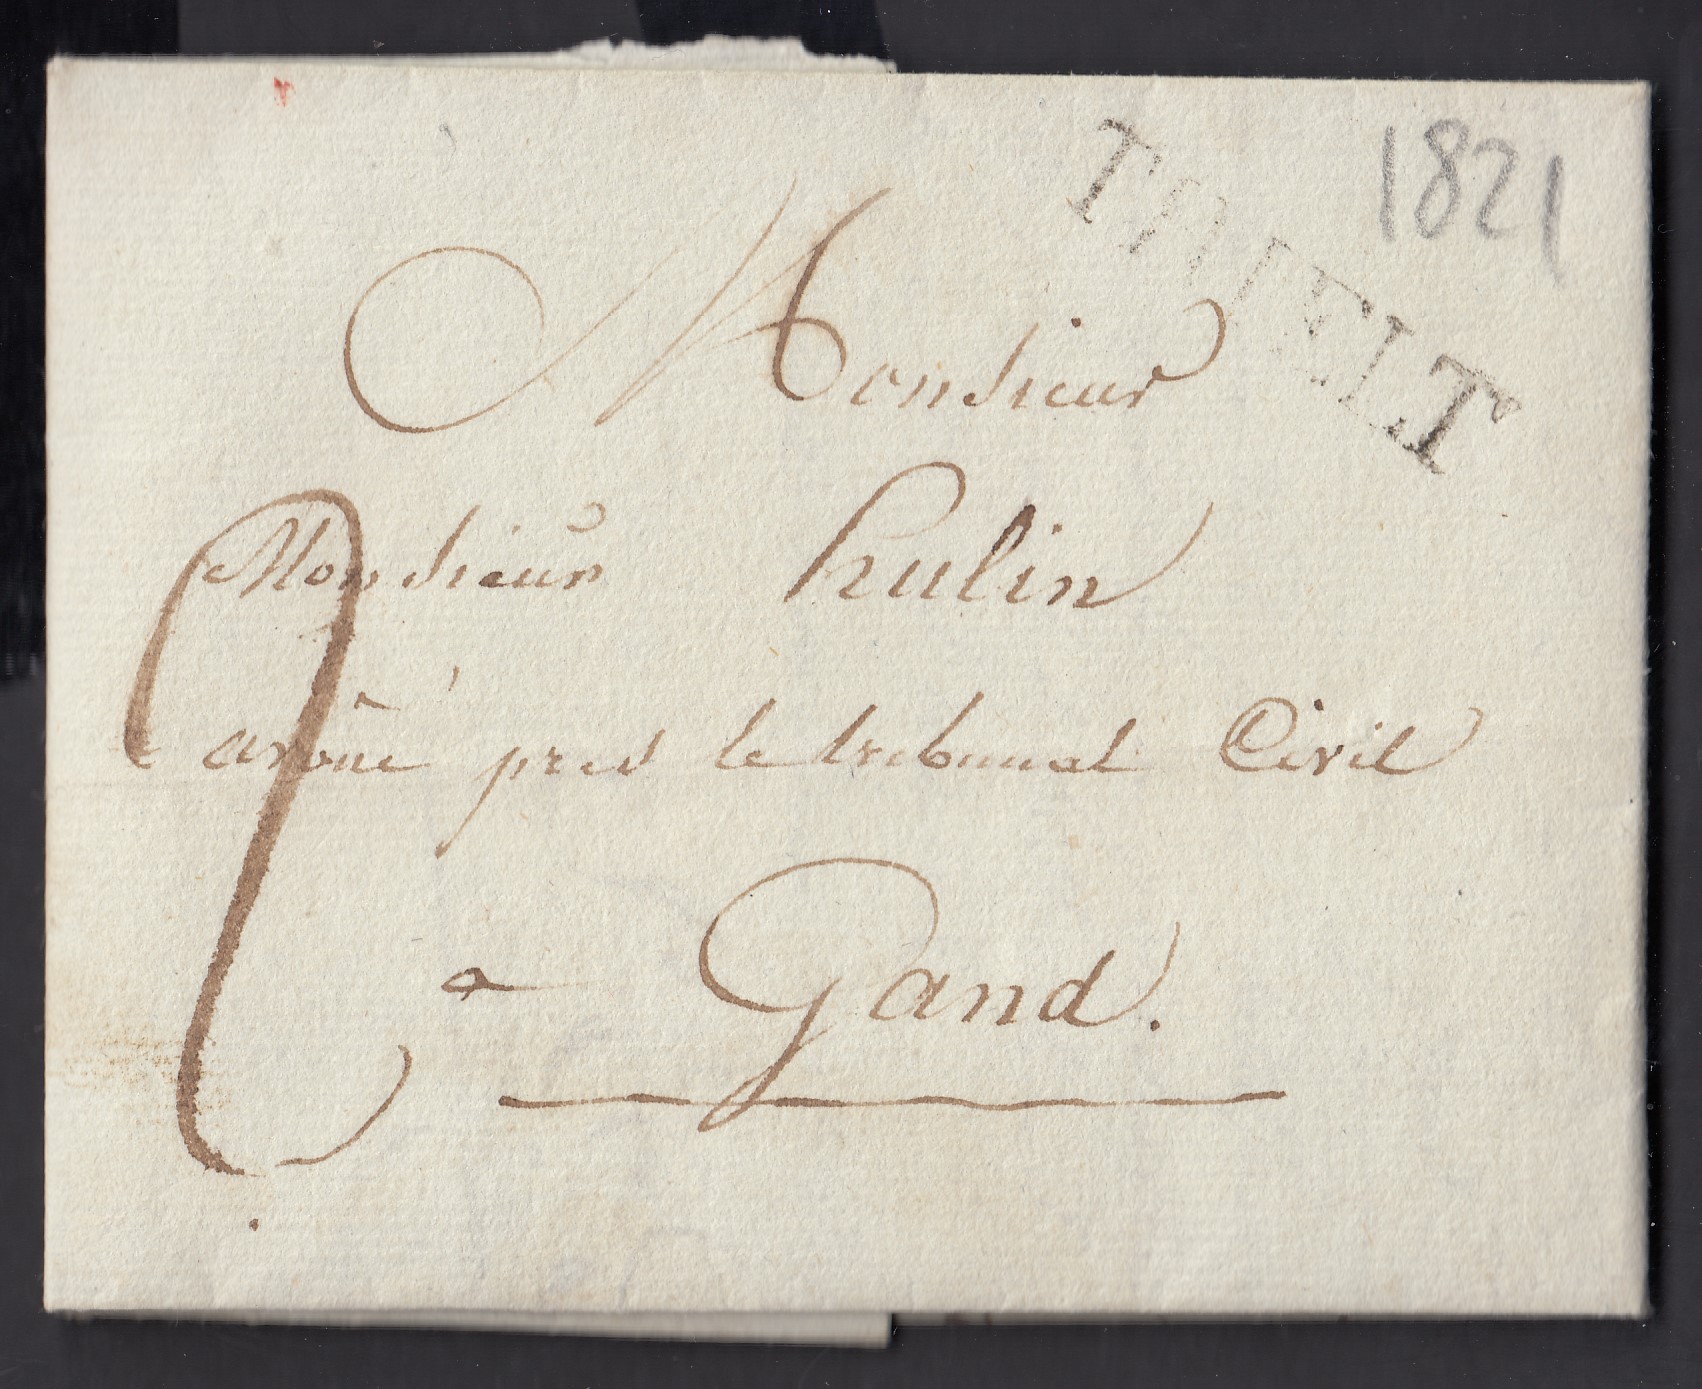 1821
THIELT
Monsieur
Monsieur hulin
avoüé pres le tribunal Civil
a Gand.
2